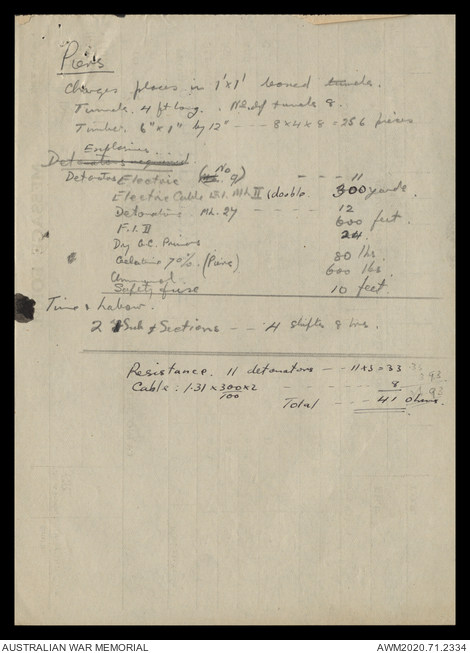 Piers
Charges places in 1'x1' boxed tunnels.
Tunnels 4 ft long. No. of tunnels 8.
Timber. 6" x 1" by 12" --- 8 x 4 x 8 = 256 pieces
Explosives
Detonators required
Detonators Electric (No 9) --- 11
Electric Cable E.1. Mk II (double 300 yards.
Detonators Mk. 27 --- 12
F.I. II 600 feet.
Dry G.C. Primers 24.
Gelatine 70%. (Piers) 80 lbs.
Ammonal 600 lbs.
Safety fuse 10 feet.
Time & Labour.
2 Sub Sections -- 4 shifts 8 hrs.
Resistance. 11 detonators -- 11x3 = 33
Cable: 1.31 x 300 x 2 --- 8
100
Total --- 41 ohms.
AUSTRALIAN WAR MEMORIAL
AWM2020.71.2334